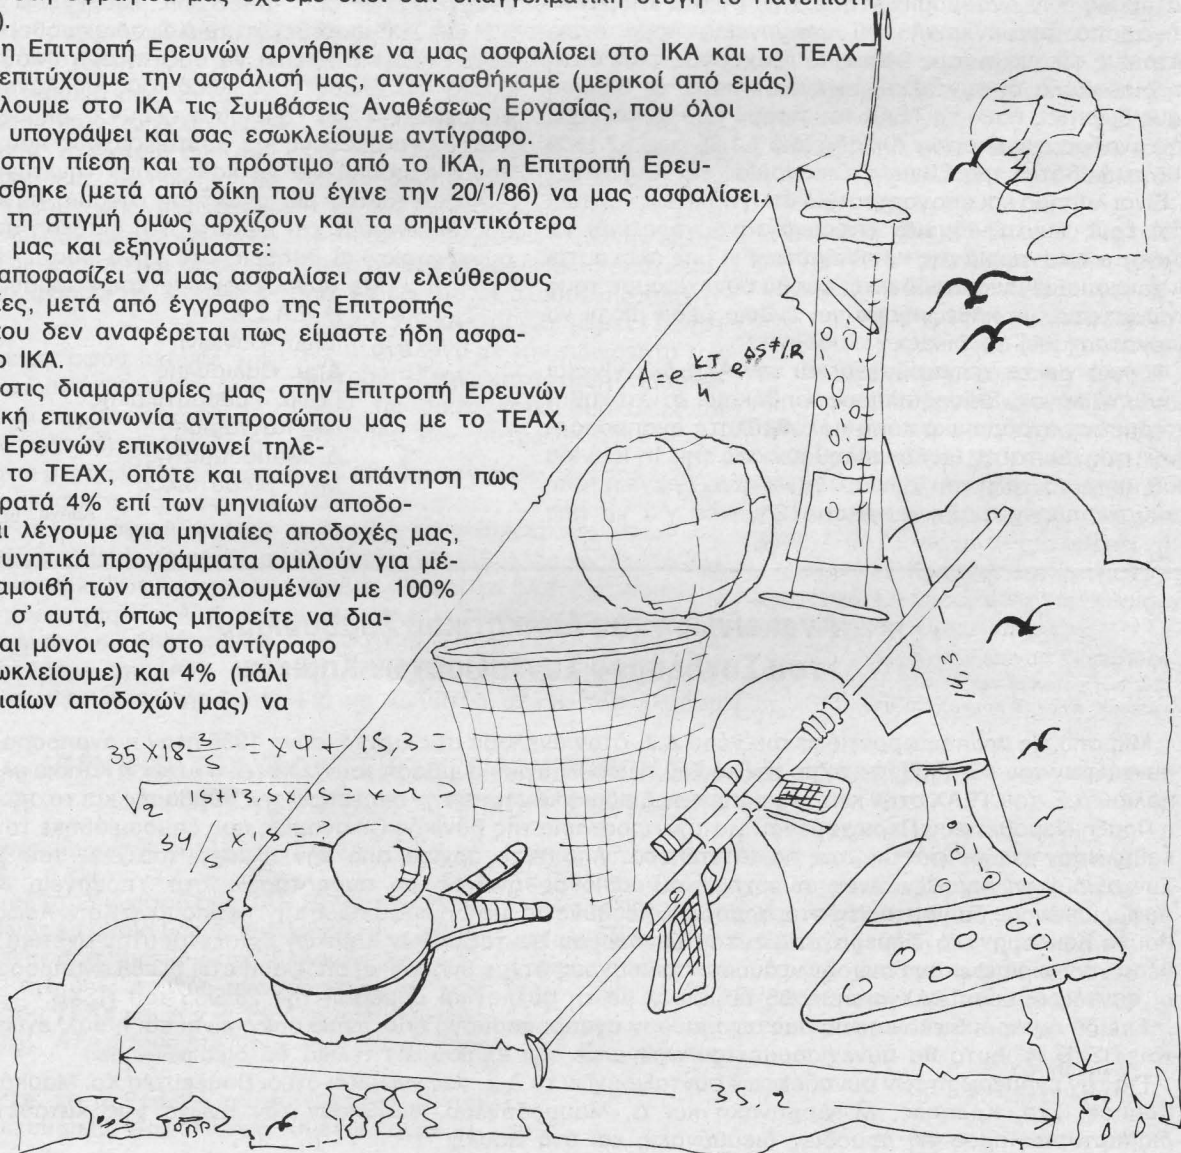 η Επιτροπή Ερευνών αρνήθηκε να μας ασφαλίσει στο ΙΚΑ και το ΤΕΑΧ
επιτύχουμε την ασφάλισή μας, αναγκασθήκαμε (μερικοί από εμάς)
λουμε στο ΙΚΑ τις Συμβάσεις Αναθέσεως Εργασίας, που όλοι
υπογράψει και σας εσωκλείουμε αντίγραφο.
στην πίεση και το πρόστιμο από το ΙΚΑ, η Επιτροπή Ερευ-
σθηκε (μετά από δίκη που έγινε την 20/1/86) να μας ασφαλίσει.
τη στιγμή όμως αρχίζουν και τα σημαντικότερα
μας και εξηγούμαστε:
αποφασίζει να μας ασφαλίσει σαν ελεύθερους
ίες, μετά από έγγραφο της Επιτροπής
που δεν αναφέρεται πως είμαστε ήδη ασφα-
ΙΚΑ.
στις διαμαρτυρίες μας στην Επιτροπή Ερευνών
κή επικοινωνία αντιπροσώπου μας με το ΤΕΑΧ,
Ερευνών επικοινωνεί τηλε-
το ΤΕΑΧ, οπότε και παίρνει απάντηση πως
ρατά 4% επί των μηνιαίων αποδο-
ι λέγουμε για μηνιαίες αποδοχές μας,
υνητικά προγράμματα ομιλούν για μέ-
αμοιβή των απασχολουμένων με 100%
σ' αυτά, όπως μπορείτε να δια-
αι μόνοι σας στο αντίγραφο
ωκλείουμε) και 4% (πάλι
ιαίων αποδοχών μας) να
A=e kT/h e ΔS≠/R
14,3
35.9